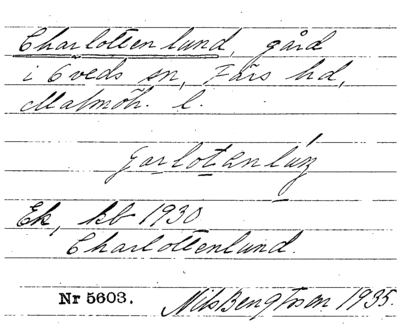 Charlottenlund, gård
i Öveds sn, Färs hd,
Malmöh. l.
Ek, kb 1930
Charlottenlund.
Nr 5603. Nils Bengtsson 1935.